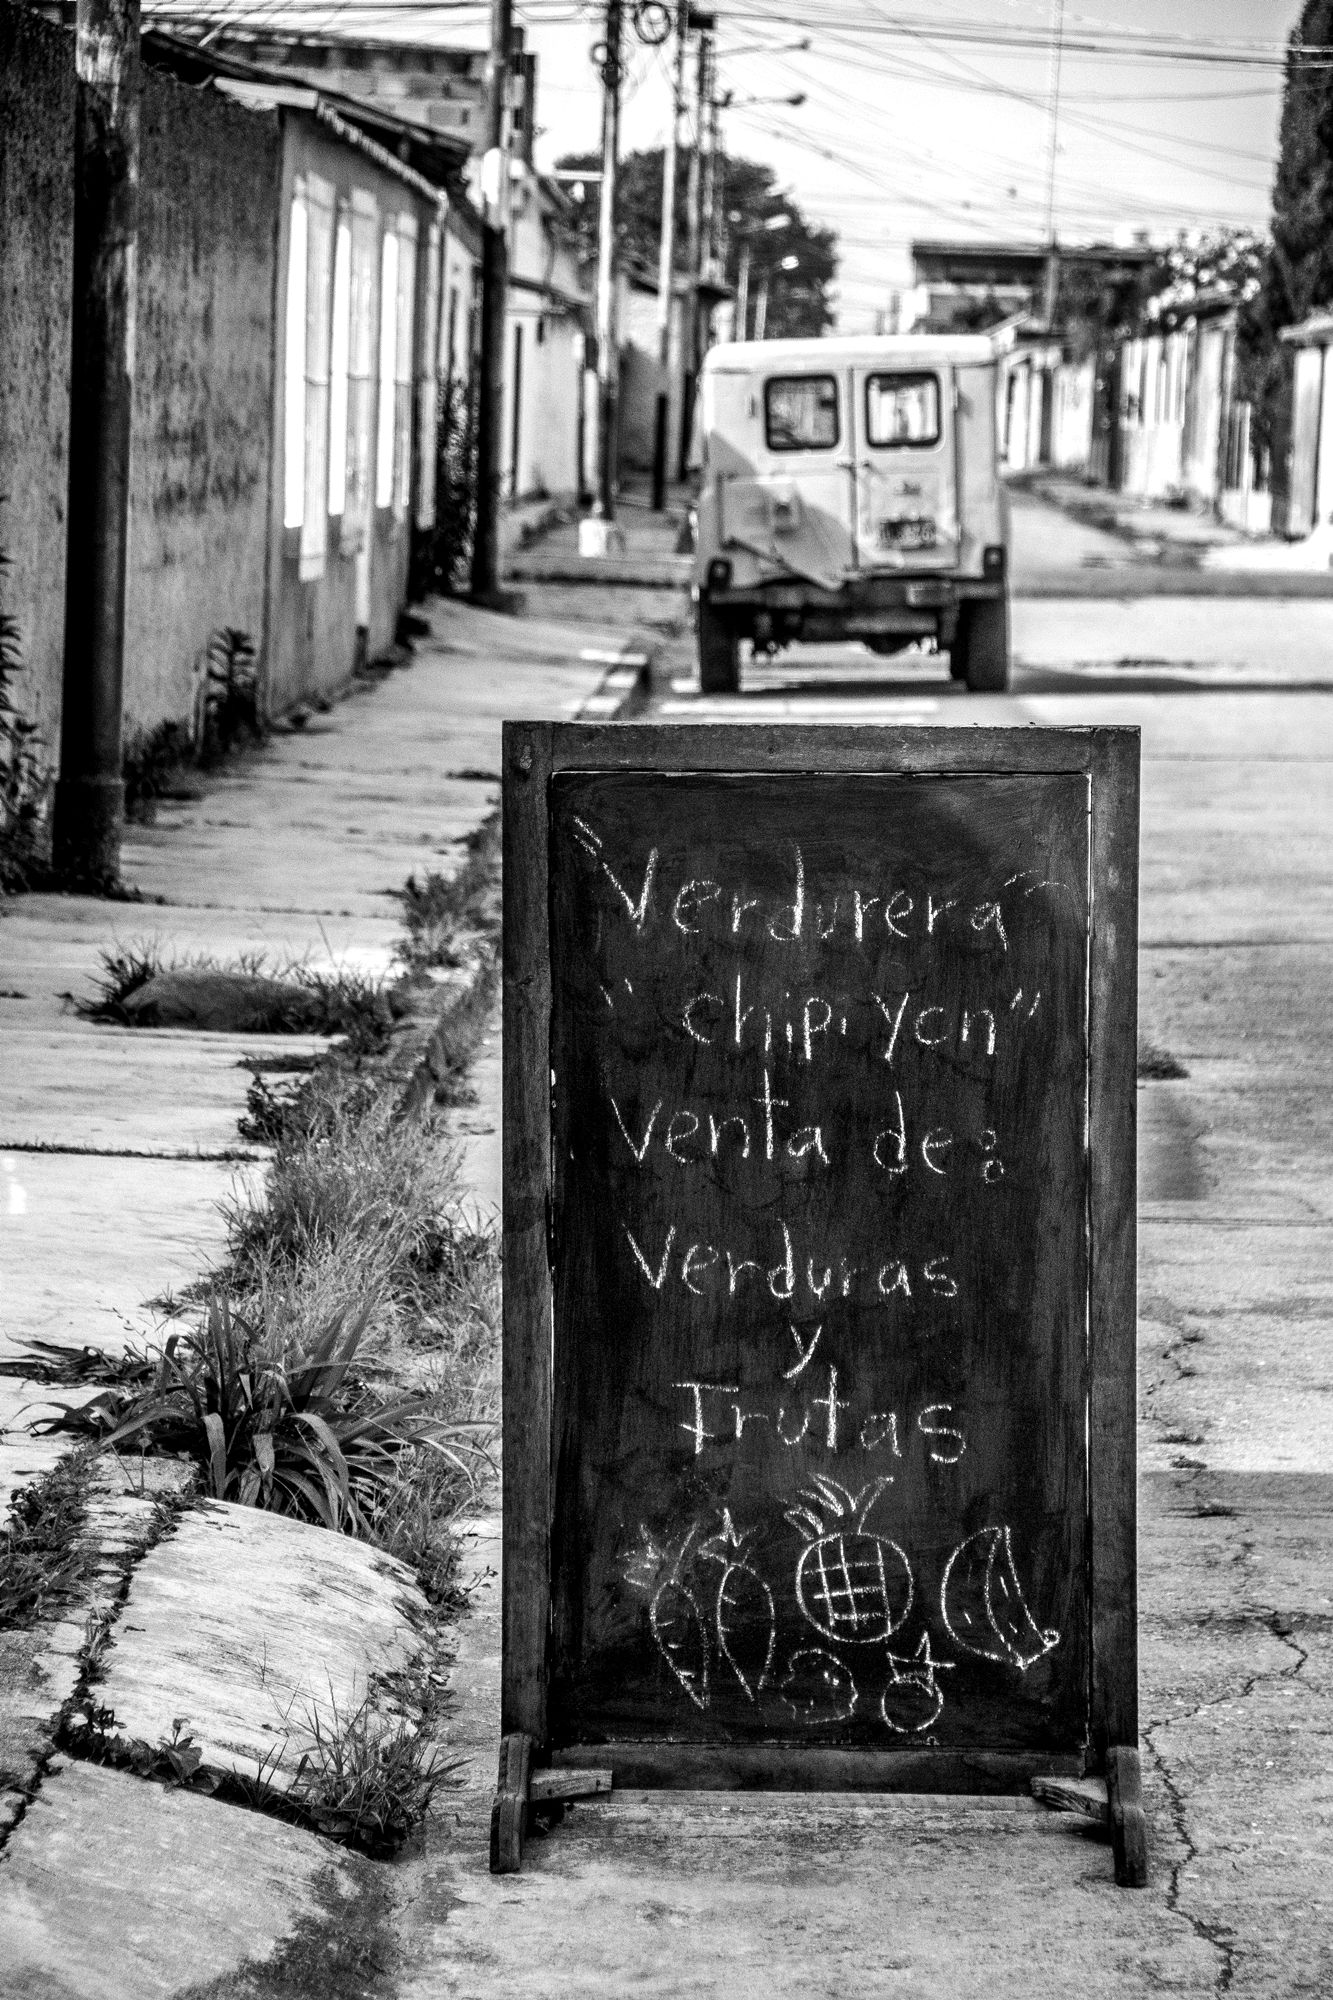 "Verdurera"
"chipi Yon"
Venta de:
Verduras
y
Frutas